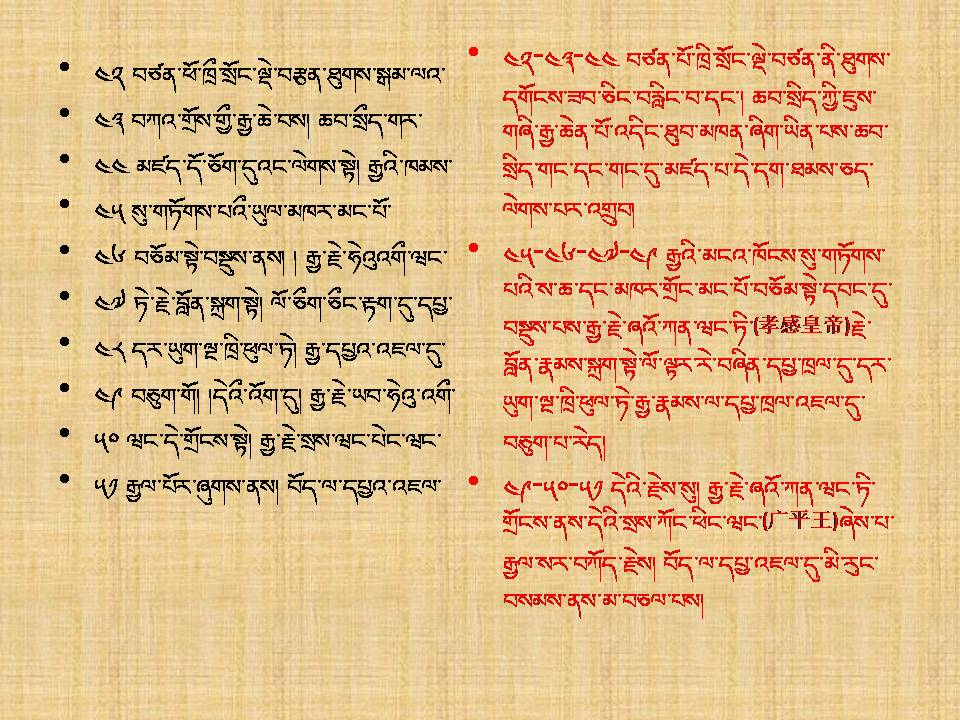 ༤༢ བཙན་ཕོ་ཁྲྀ་སྲོང་ལྡེ་བརྩན་ཐུགས་སྒམ་ལའ་
༤༣ བཀའ་གྲོས་གྱྀ་རྒྱ་ཆེ་བས། ཆབ་སྲྀད་གར་
༤༤ མཛད་དོ་ཅོག་དུའང་ལེགས་སྟེ། རྒྱའི་ཁམས་
༤༥ སུ་གཏོགས་པའྀ་ཡུལ་མཁར་མང་པོ་
༤༦ བཅོམ་སྟེ་བསྡུས་ནས། ། རྒྱ་རྗེ་ཧེའུའགྀ་ཝང་
༤༧ ཏེ་རྗེ་བློན་སྐྲག་སྟེ། ལོ་ཅྀག་ཅྀང་རྟག་དུ་དཔྱ་
༤༨ དར་ཡུག་ལྔ་ཁྲི་ཕུལ་ཏེ། རྒྱ་དཔྱའ་འཇལ་དུ་
༤༩ བཅུག་གོ། །དེའྀ་འོག་དུ། རྒྱ་རྗེ་ཡབ་ཧེའུ་འགྀ་
༥༠ ཝང་དེ་གྲོངས་སྟེ། རྒྱ་རྗེ་སྲས་ཝང་པེང་ཝང་
༥༡ རྒྱལ་པོར་ཞུགས་ནས། བོད་ལ་དཔྱའ་འཇལ་
༤༢-༤༣-༤༤ བཙན་པོ་ཁྲི་སྲོང་ལྡེ་བཙན་ནི་ཐུགས་
དགོངས་ཟབ་ཅིང་བརླིང་བ་དང་། ཆབ་སྲིད་ཀྱི་ཇུས་
གཞི་རྒྱ་ཆེན་པོ་འདིང་ཐུབ་མཁན་ཞིག་ཡིན་པས་ཆབ་
སྲིད་གང་དང་གང་དུ་མཛད་པ་དེ་དག་ཐམས་ཅད་
ལེགས་པར་འགྲུབ།
༤༥-༤༦-༤༧-༤༩ རྒྱའི་མངའ་ཁོངས་སུ་གཏོགས་
པའི་ས་ཆ་དང་མཁར་གྲོང་མང་པོ་བཅོམ་སྟེ་དབང་དུ་
བསྡུས་པས་རྒྱ་རྗེ་ཞའོ་ཀན་ཝང་ཏི་(孝感皇帝)རྗེ་
བློན་རྣམས་སྐྲག་སྟེ་ལོ་ལྟར་རེ་བཞིན་དཔྱ་ཁྲལ་དུ་དར་
ཡུག་ལྔ་ཁྲི་ཕུལ་ཏེ་རྒྱ་རྣམས་ལ་དཔྱ་ཁྲལ་འཇལ་དུ་
བཅུག་པ་རེད།
༤༩-༥༠-༥༡ དེའི་རྗེས་སུ། རྒྱ་རྗེ་ཞའོ་ཀན་ཝང་ཏི་
གྲོངས་ནས་དེའི་སྲས་ཀོང་ཕིང་ཝང་(广平王)ཞེས་པ་
རྒྱལ་སར་བཀོད་རྗེས། བོད་ལ་དཔྱ་འཇལ་དུ་མི་རུང་
བསམས་ནས་མ་བཅལ་པས།